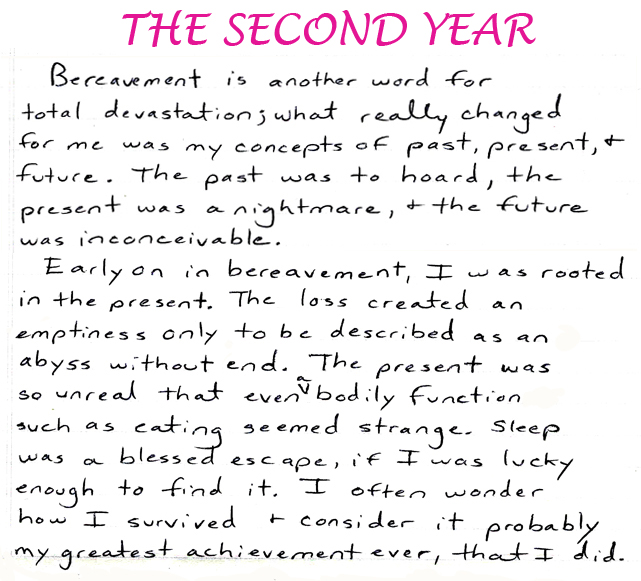 THE SECOND YEAR
Bereavement is another word for
total devastation; what really changed
for me was my concepts of past, present, +
future. The past was to hoard, the
present was a nightmare, + the future
was inconceivable.
Early on in bereavement, I was rooted
in the present. The loss created an
emptiness only to be described as an
abyss without end. The present was
so unreal that even a bodily function
such as eating seemed strange. Sleep
was a blessed escape, if I was lucky
enough to find it. I often wonder
how I survived + consider it probably
my greatest achievement ever, that I did.